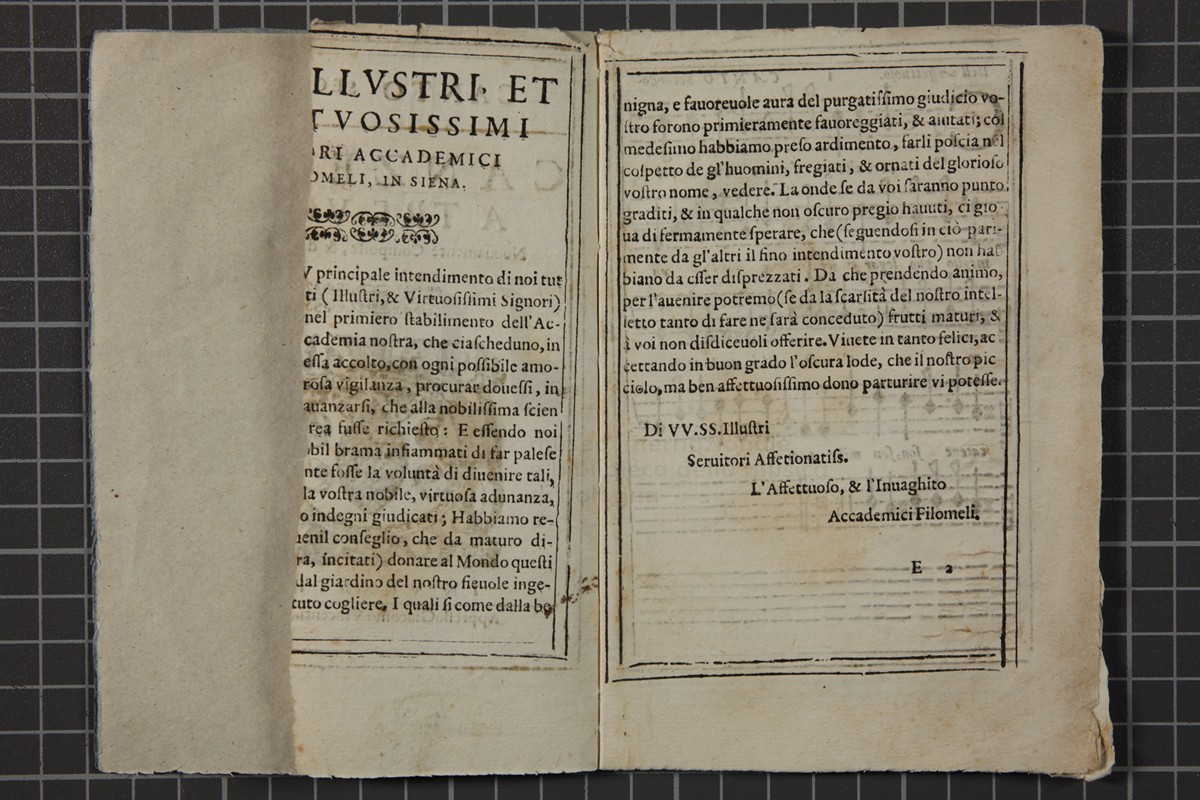 LLVSTRI. ET
TVOSISSIMI
ORI ACCADEMICI
OMELI, IN SIENA.
V principale intendimento di noi tut
ti (Illuſtri, & Virtuoſiſſimi Signori)
nel primiero ſtabilimento dell'Ac-
cademia noſtra, che ciaſcheduno, in
eſſa accolto, con ogni poſſibile amo-
roſa vigilanza, procurar doueſſi, in
auanzarſi, che alla nobiliſſima ſcien
rea fuſſe richieſto: E eſſendo noi
bil brama infiammati di far paleſe
nte foſſe la voluntà di diuenire tali,
la voſtra nobile, virtuoſa adunanza,
o indegni giudicati; Habbiamo re-
uenil conſeglio, che da maturo di-
ra, incitati) donare al Mondo queſti
dal giardino del noſtro fieuole inge-
tuto cogliere. I quali ſi come dalla be
nigna, e fauoreuole aura del purgatiſſimo giudicio vo-
ſtro forono primieramente fauoreggiati, & aiutati; col
medeſimo habbiamo preſo ardimento, farli poſcia nel
coſpetto de gl'huomini, fregiati, & ornati del glorioſo
voſtro nome, vedere. La onde ſe da voi ſaranno punto
graditi, & in qualche non oſcuro pregio hauuti, ci gio-
ua di fermamente ſperare, che (ſeguendoſi in ciò pari-
mente da gl'altri il fino intendimento voſtro) non hab
biano da eſſer diſprezzati. Da che prendendo animo,
per l'auenire potremo (ſe da la ſcarſità del noſtro intel-
letto tanto di fare ne ſarà conceduto) frutti maturi, &
à voi non diſdiceuoli offerire. Viuete in tanto felici, ac
cettando in buon grado l'oſcura lode, che il noſtro pic
ciolo, ma ben affettuoſiſſimo dono parturire vi poteſſe.
Di VV.SS. Illuſtri
Seruitori Affetionatiſs.
L'Affettuoſo, & l'Inuaghito
Accademici Filomeli.
E 2